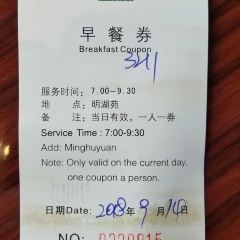 早餐券
Breakfast Coupon
3211
服务时间：7.00-9.30
地 点：明湖苑
备 注：当日有效，一人一券
Service Time : 7:00-9:30
Add: Minghuyuan
Note: Only valid on the current day.
one coupon a person.
日期Date: 2018年9月14日
NO: 0220915